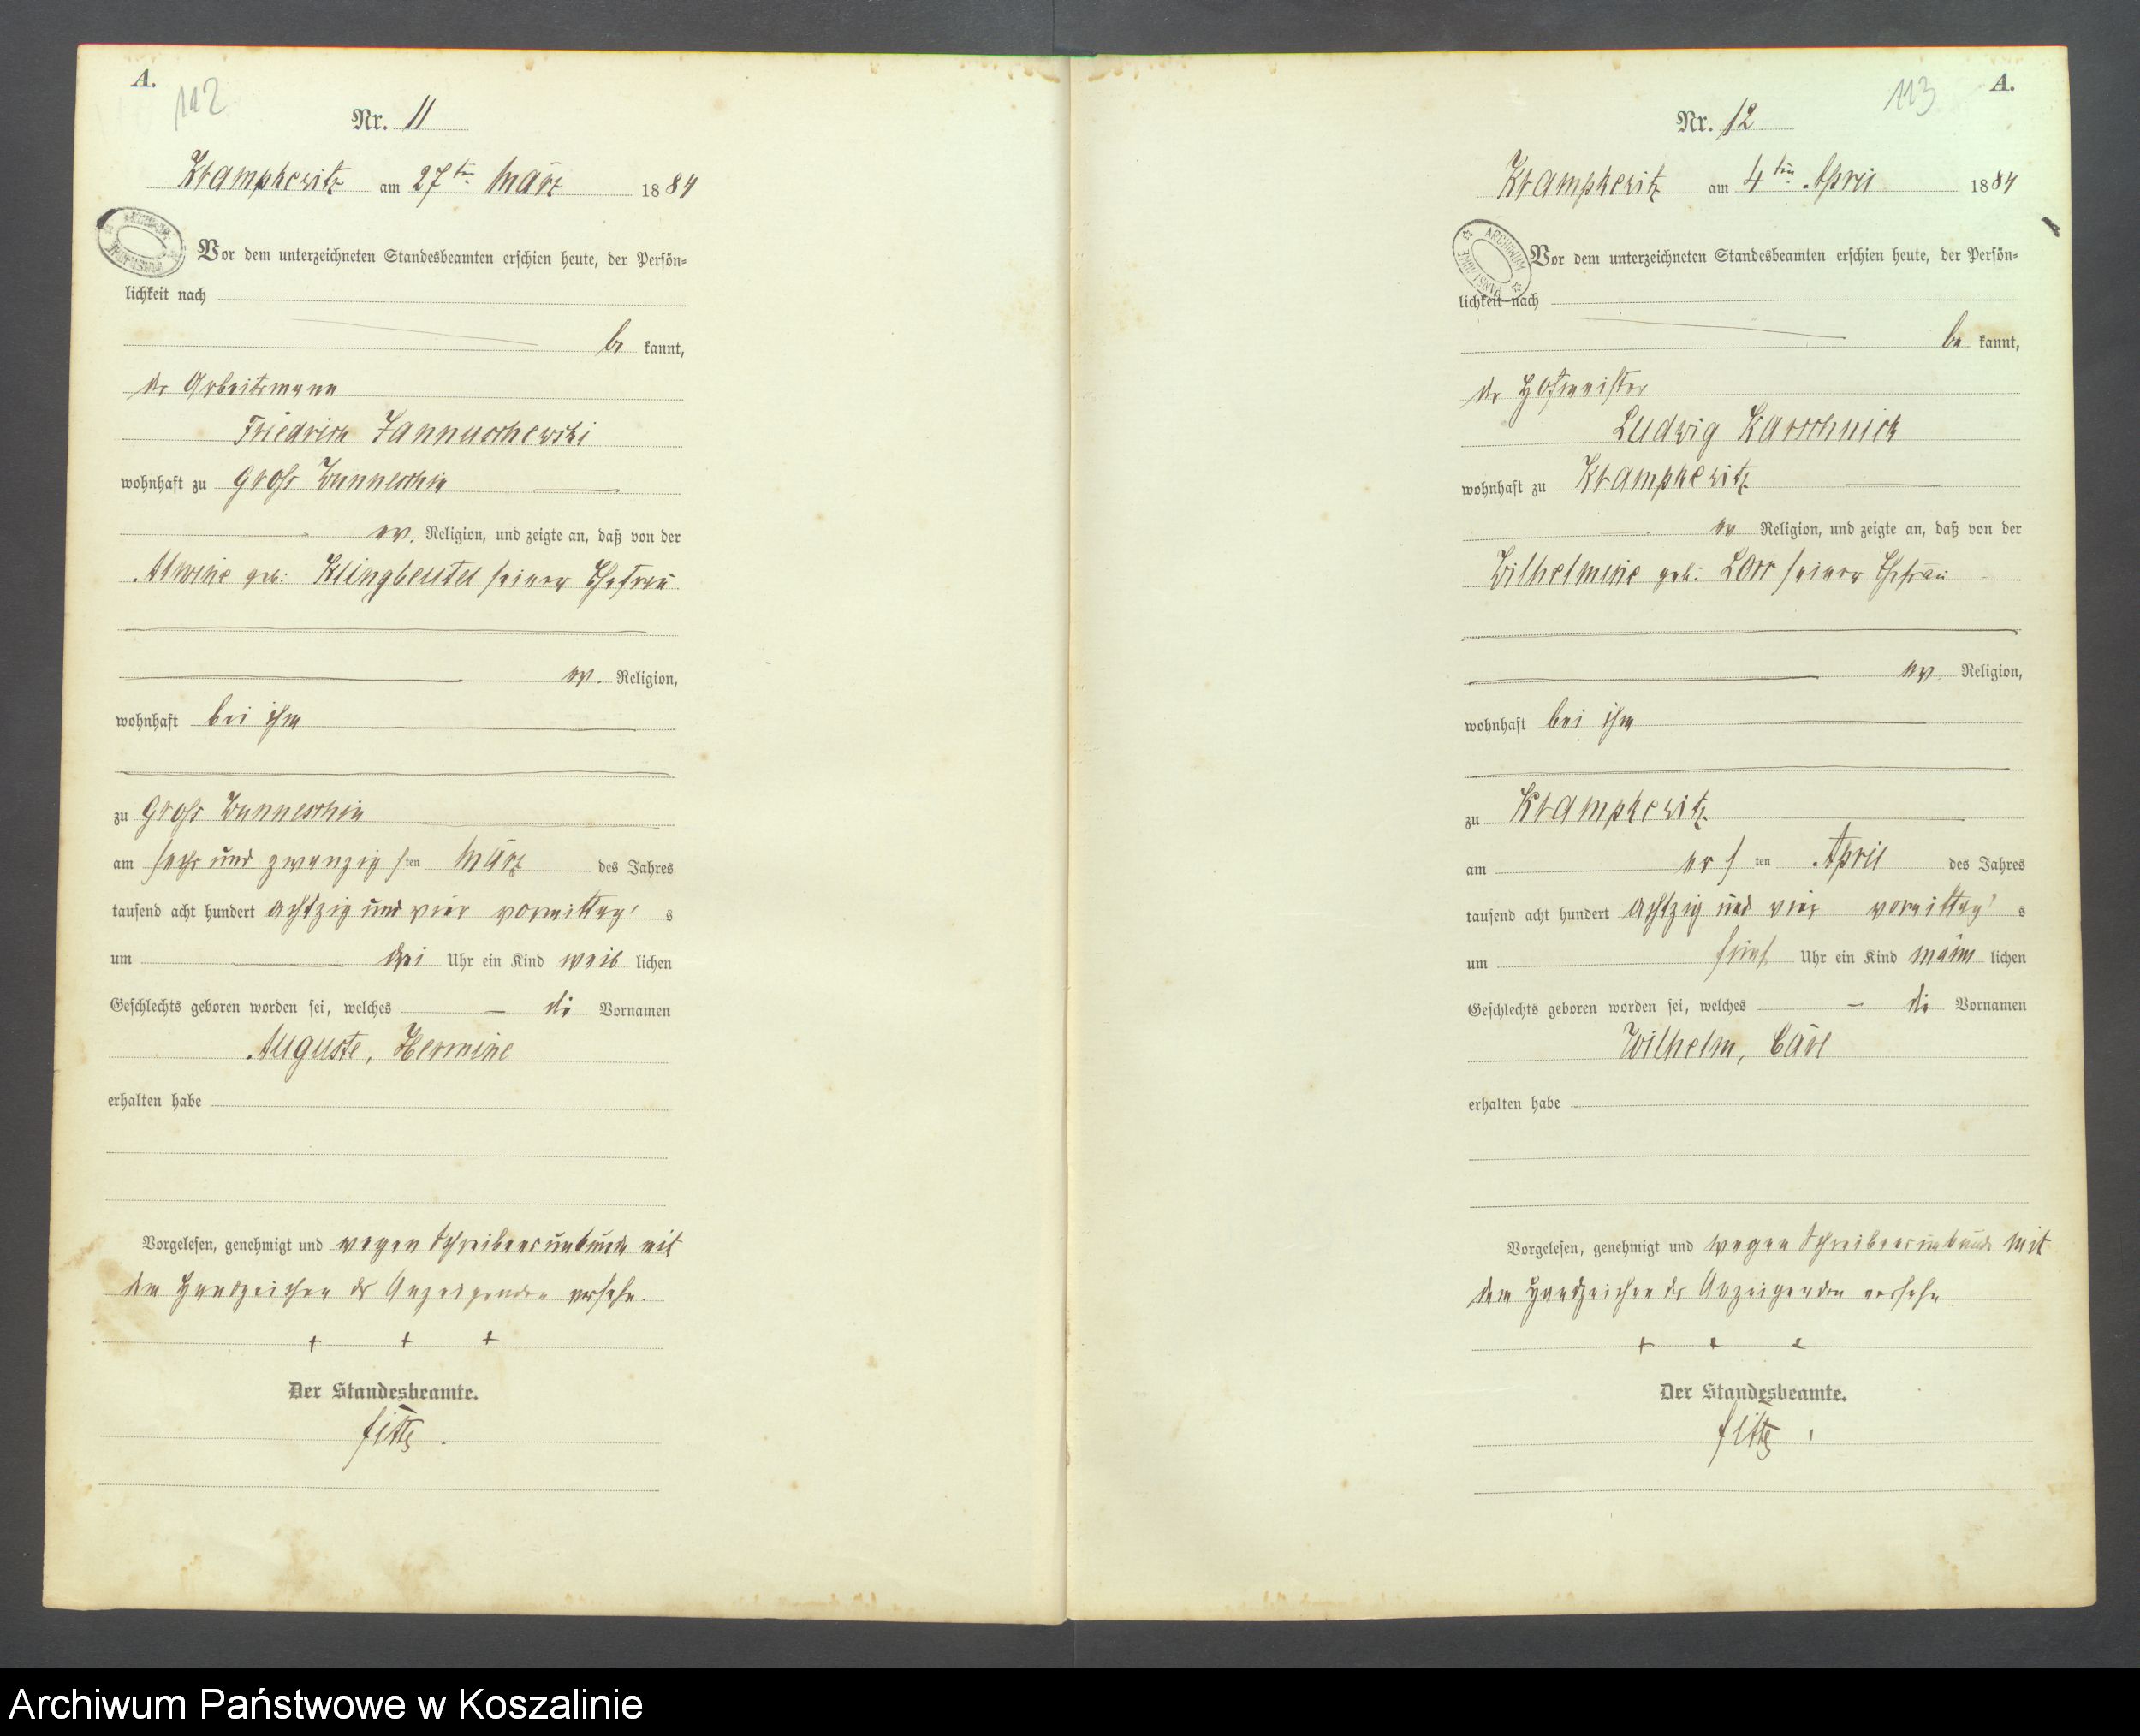 A.
112
Nr. 11
Krampkewitz am 27ten März 1884
Vor dem unterzeichneten Standesbeamten erschien heute, der Persön-
lichkeit nach
be kannt,
der Arbeitsmann
Friedrich Jannuschewski
wohnhaft zu Gross Wunneschin
ev. Religion, und zeigte an, daß von der
Alwine geb: Klingbeutel seiner Ehefrau
ev. Religion,
wohnhaft bei ihm
zu Gross Wunneschin
am sechs und zwanzigsten März des Jahres
tausend acht hundert achtzig und vier vormittags
um drei Uhr ein Kind weiblichen
Geschlechts geboren worden sei, welches die Vornamen
Auguste, Hermine
erhalten habe
Vorgelesen, genehmigt und wegen Schreibensunkunde mit
dem Handzeichen des Anzeigenden versehen.
+ + +
Der Standesbeamte.
A.
113
Nr. 12
Krampkewitz am 4ten April 1884
ARCHIWUM
Vor dem unterzeichneten Standesbeamten erschien heute, der Persön-
lichkeit nach
be kannt,
der Hofmeister
Ludwig Karschnick
wohnhaft zu Krampkewitz
ev Religion, und zeigte an, daß von der
Wilhelmine geb: Lorr seiner Ehefrau
ev. Religion,
wohnhaft bei ihm
zu Krampkewitz
am ersten April des Jahres
tausend acht hundert achtzig und vier vormittags
um fünf Uhr ein Kind männlichen
Geschlechts geboren worden sei, welches die Vornamen
Wilhelm, Carl
erhalten habe
Vorgelesen, genehmigt und wegen Schreibensunkunde mit
dem Handzeichen des Anzeigenden versehen
+ + +
Der Standesbeamte.
Archiwum Państwowe w Koszalinie